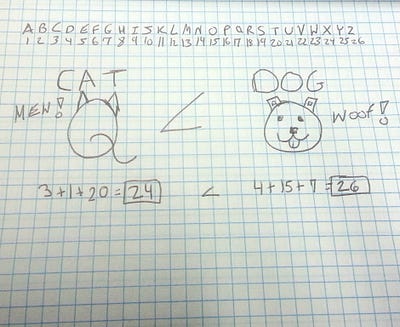 A B C D E F G H I J K L M N O P Q R S T U V W X Y Z
1 2 3 4 5 6 7 8 9 10 11 12 13 14 15 16 17 18 19 20 21 22 23 24 25 26
CAT < DOG
MEW! Woof!
3+1+20=24 < 4+15+7=26